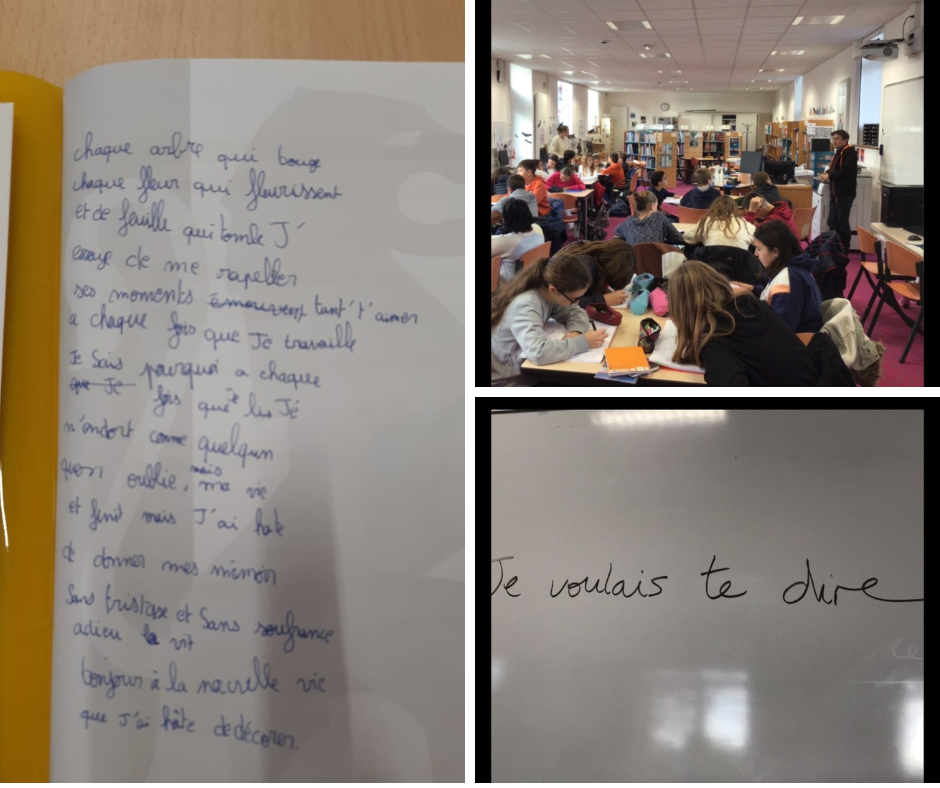 chaque arbre qui bouge
chaque fleur qui fleurissent
et de feuille qui tombe J'
essaye de me rapeller
ses moments émouvent tant t'aimer
a chaque fois que Je travaille
Je Sais pourquoi a chaque
que Je fois que Je lu Jé
n'endort comme quelqun
quon oublie, mais ma vie
et finit mais J'ai hate
de donner mes mémoir
Sans tristase et Sans soufrance
adieu la vit
bonjour à la nouvelle vie
que J'ai hâte de décorer.
Je voulais te dire